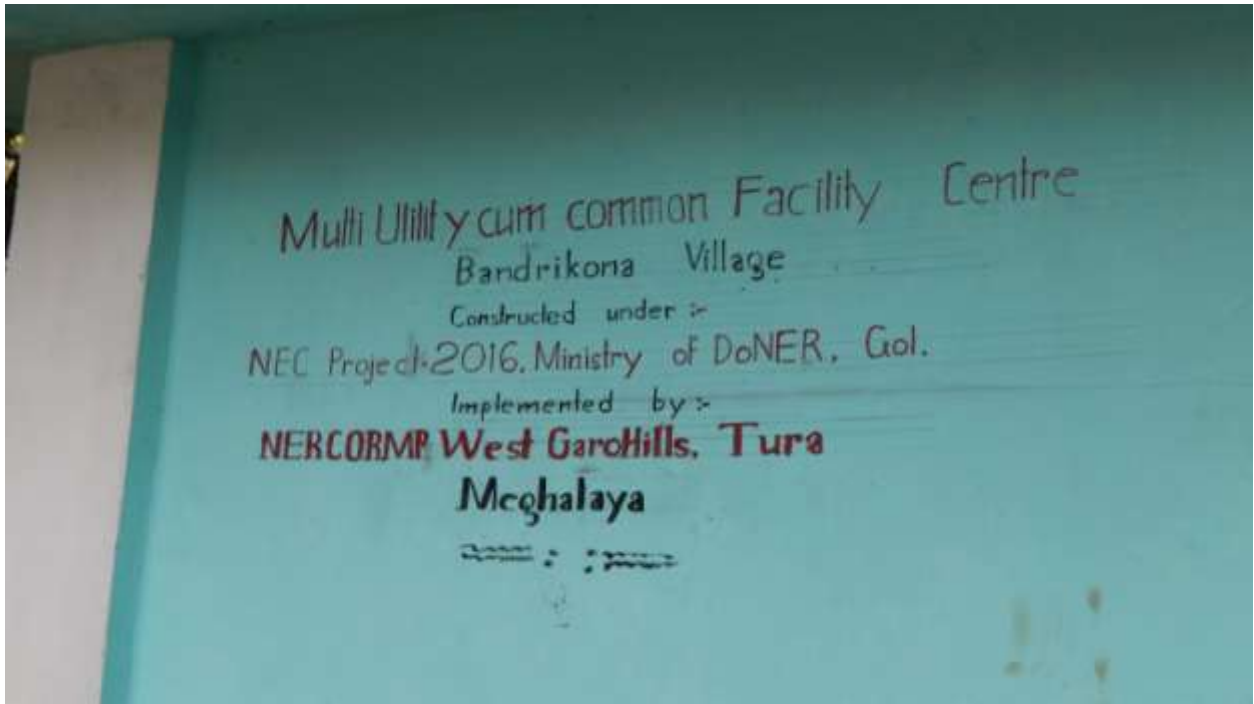 Multi Utility cum common Facility Centre
Bandrikona Village
Constructed under :-
NEC Project-2016, Ministry of DoNER, GoI.
Implemented by :-
NERCORMP, West Garo Hills, Tura
Meghalaya